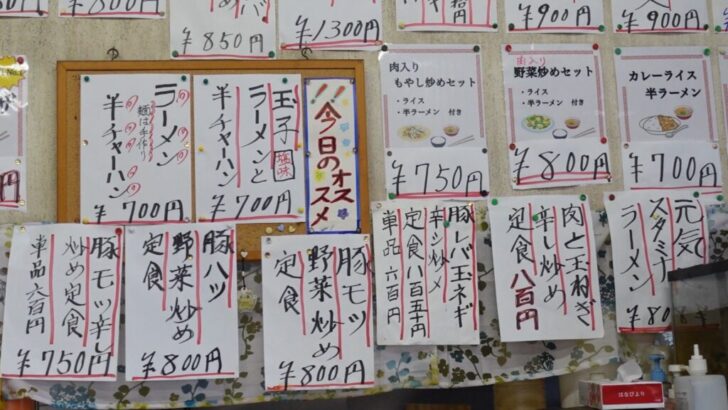 ¥850
¥1,300
¥900
¥900
ラーメン
麺は手作り
半チャーハン
¥700円
玉子
塩味
ラーメンと
半チャーハン
¥700円
!!今日のオススメ
肉入り
もやし炒めセット
・ライス
・半ラーメン 付き
¥750円
肉入り
野菜炒めセット
・ライス
・半ラーメン 付き
¥800円
カレーライス
半ラーメン
¥700円
豚モツ辛し
炒め定食
単品 六百円
¥750円
豚ハツ
野菜炒め
定食
¥800円
豚モツ
野菜炒め
定食
¥800円
豚レバ玉ネギ
辛シ炒メ
定食 八百五十円
単品 六百円
肉と玉ねぎ
辛し炒め
定食 八百円
元気
スタミナ
ラーメン
¥80
はなびより